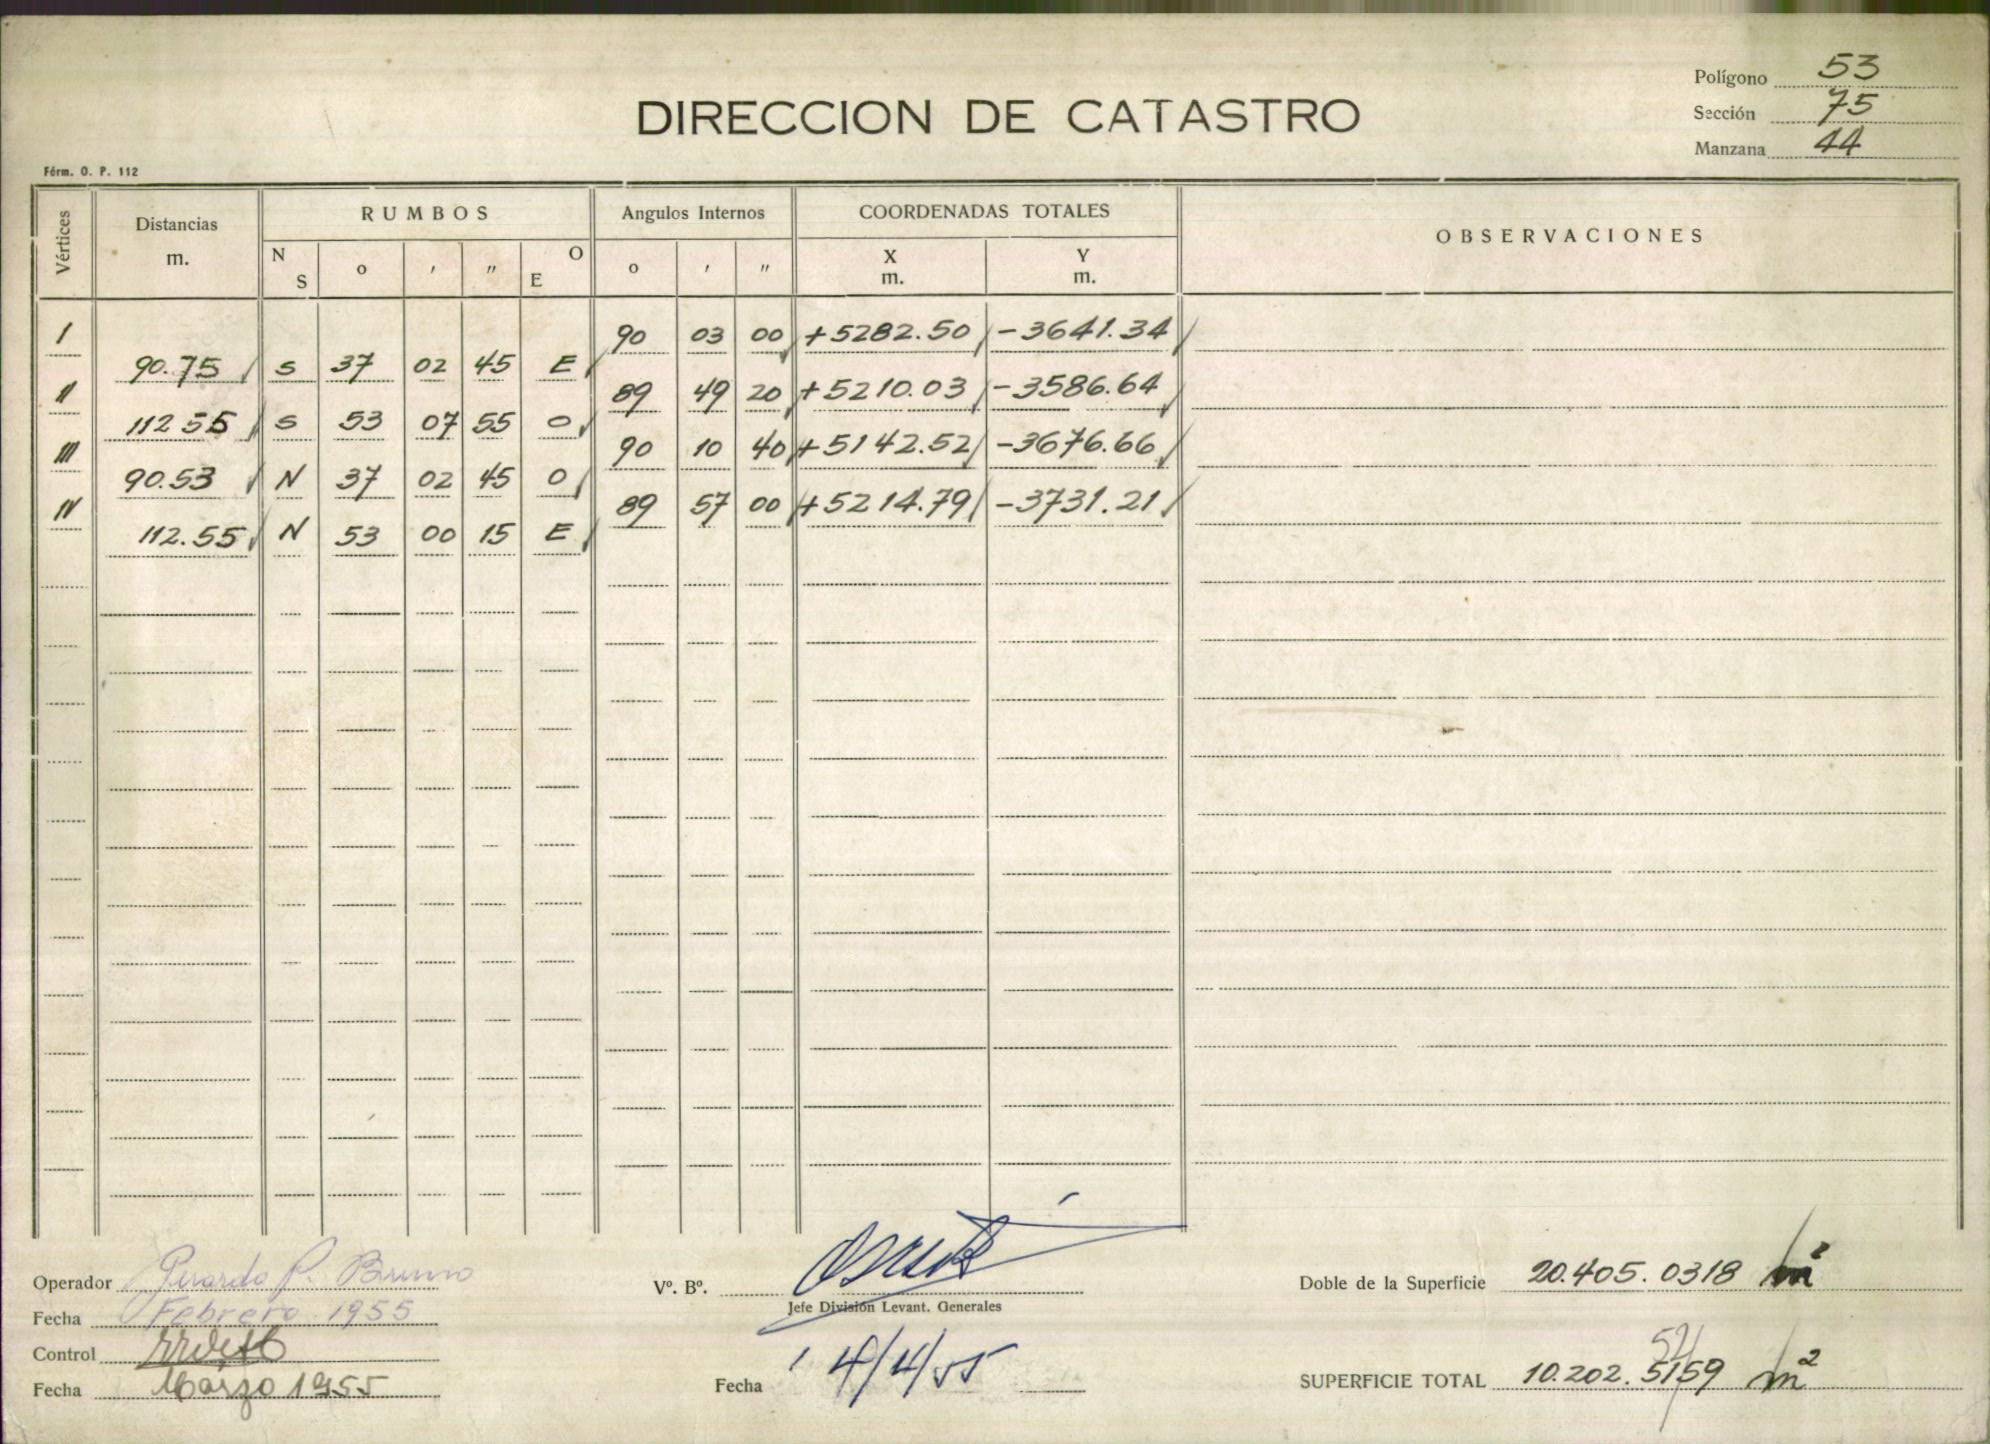 Polígono 53
DIRECCION DE CATASTRO
Sección 75
Manzana 44
Fórm. O. P. 112
Vértices Distancias m. RUMBOS Angulos Internos COORDENADAS TOTALES OBSERVACIONES
N S o ′ ″ O E o ′ ″ X m. Y m.
I 90 03 00 +5282.50 -3641.34
90.75 S 37 02 45 E
II 89 49 20 +5210.03 -3586.64
112 55 S 53 07 55 O
III 90 10 40 +5142.52 -3676.66
90.53 N 37 02 45 O
IV 89 57 00 +5214.79 -3731.21
112.55 N 53 00 15 E
Operador P. Bruno
Vº. Bº.
Doble de la Superficie 20.405.0318 m²
Jefe División Levant. Generales
Fecha Febrero 1955
Control
Fecha Marzo 1955
Fecha 4/4/55
52
SUPERFICIE TOTAL 10.202.5159 m²